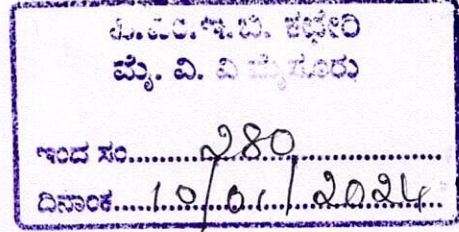 ಪಿ.ಎಂ.ಇ.ಬಿ. ಕಛೇರಿ
ಮೈ. ವಿ. ವಿ ಮೈಸೂರು
ಇಂದ ಸಂ.....280.....
ದಿನಾಂಕ....10/01/2024....